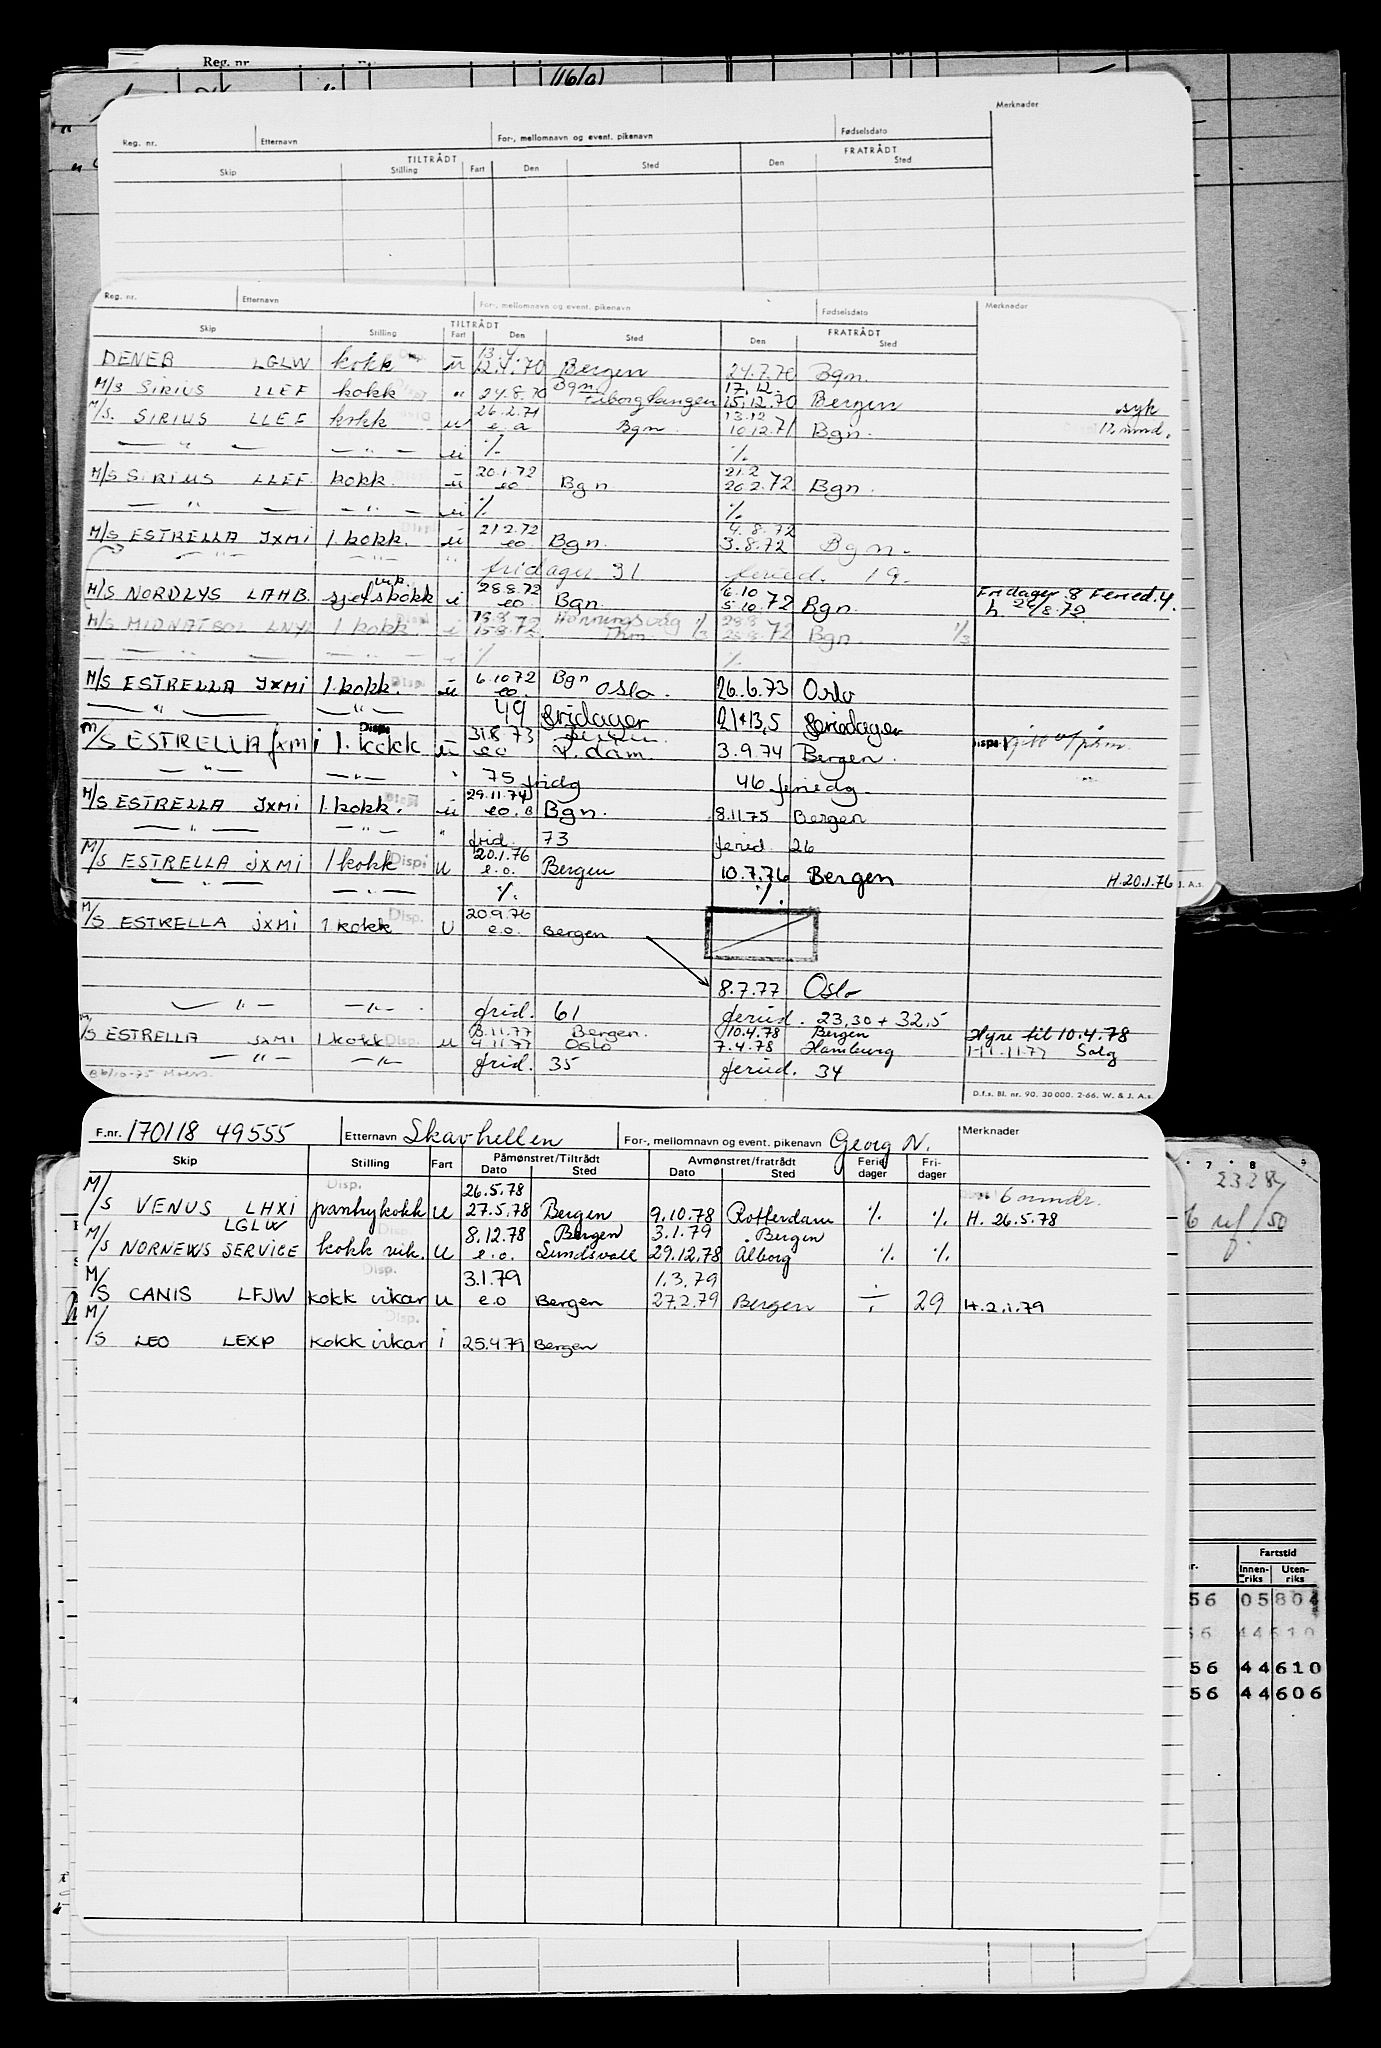 Reg. nr
Merknader
Reg. nr. Etternavn For-, mellomnavn og event. pikenavn Fødselsdato
TILTRÅDT FRATRÅDT
Skip Stilling Fart Den Sted Den Sted
Reg. nr. Etternavn For-, mellomnavn og event. pikenavn Fødselsdato Merknader
TILTRÅDT FRATRÅDT
Skip Stilling Fart Den Sted Den Sted
13.4
DENEB LGLW kokk u 12.4.70 Bergen 24.7.70 Bgn.
Bgn 17.12.
M/S SIRIUS LLEF kokk " 24.8.70 15.12.70 Bergen syk
26.2.71 13.12
M/S. SIRIUS LLEF kokk u e.o Bgn. 10.12.71 Bgn. 12 mnd.
— " — — " — u % %
20.1.72 21.2
M/S SIRIUS LLEF kokk. u eo Bgn 20.2.72 Bgn.
— " — — " — u % %
21.2.72 4.8.72
M/S ESTRELLA JXMI 1. kokk. u eo Bgn. 3.8.72 Bgn.
— " — — " — " fridager 31 feried. 19.
vik. 28.8.72 6.10 Fridager 8 Feried. 4.
M/S NORDLYS LAHB. sjefskokk i eo Bgn. 5.10.72 Bgn. h 24/8.72
15.8 Honningsvåg 1/3 28.8 1/3
M/S MIDNATSOL LNYL 1 kokk. i 15.8.72 Thm. 28.8.72 Bgn
— " — — " — i % %
6.10.72 Bgn
M/S ESTRELLA JXMI 1. kokk. Disp. u eo. Oslo. 26.6.73 Oslo
— " — — " — 49 fridager 21+13,5 feriedager
Disp. 31.8.73
M/S ESTRELLA JXMI 1. kokk u eo R.dam. 3.9.74 Bergen.
— " — — " — " 75 fridg 46 feriedg.
29.11.74
M/S ESTRELLA JXMI 1. kokk. u eo. Bgn. 8.11.75 Bergen
— " — — " — " frid. 73 feried. 26
20.1.76
M/S ESTRELLA JXMI 1 kokk Disp. u e.o. Bergen 10.7.76 Bergen H. 20.1.76
— " — — " — %. %.
20.9.76
M/S ESTRELLA JXMI 1. kokk Disp. u e.o. Bergen
8.7.77 Oslo
— " — — " — frid. 61 feried. 23,30 + 32,5
3.11.77 Bergen. 10.4.78 Bergen Hyre til 10.4.78
M/S ESTRELLA JXMI 1. kokk Disp. u 4.11.77 Oslo 7.4.78 Hamburg H 1.11.77 Solg
— " — — " — frid. 35 feried. 34
D.f.s. Bl. nr. 90. 30 000. 2-66. W. & J. A.s.
J. A.s.
F.nr. 170118 49555 Etternavn Skavhellen For-, mellomnavn og event. pikenavn Georg N. Merknader
Skip Stilling Fart Påmønstret/Tiltrådt Avmønstret/fratrådt Ferie- Fri-
Dato Sted Dato Sted dager dager
Disp. 26.5.78 6 mndr.
M/S VENUS LHXI pantrykokk u 27.5.78 Bergen 9.10.78 Rotterdam % % H. 26.5.78
LGLW 8.12.78 Bergen 3.1.79 Bergen
M/S NORNEWS SERVICE kokk vik. u e.o. Sundsvall 29.12.78 Ålborg % %
Disp. 3.1.79 1.3.79
M/S CANIS LFJW kokk vikar u e.o Bergen 27.2.79 Bergen ÷ 29 H. 2.1.79
Disp.
M/S LEO LEXP kokk vikar i 25.4.79 Bergen
7 8 9
2328
Fartstid
Innen- Uten-
riks riks
56 05 804
56 44 610
56 44 610
56 44 606